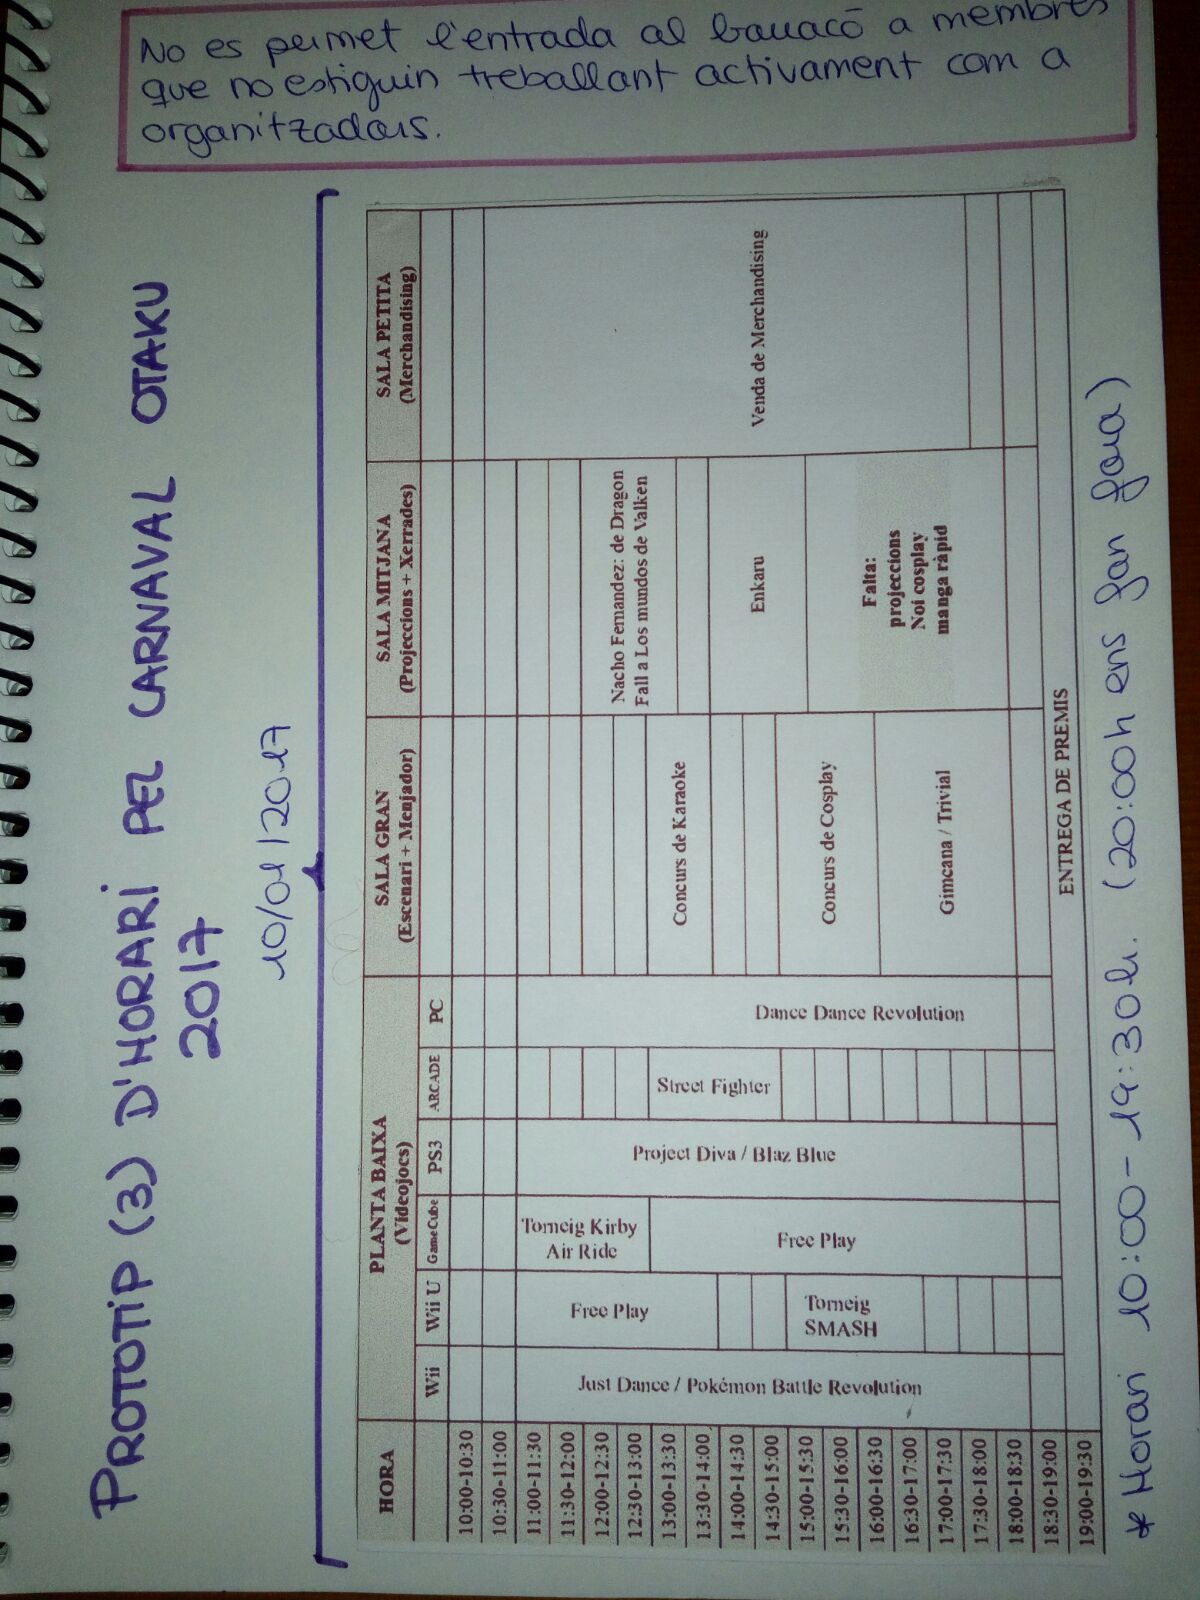 No es permet l'entrada al bauacó a membres
que no estiguin treballant activament com a
organitzadors.
PROTOTIP (3) D'HORARI PEL CARNAVAL OTAKU
2017
10/01/2017
HORA
PLANTA BAIXA
(Videojocs)
SALA GRAN
(Escenari + Menjador)
SALA MITJANA
(Projeccions + Xerrades)
SALA PETITA
(Merchandising)
Wii
Wii U
GameCube
PS3
ARCADE
PC
10:00-10:30
10:30-11:00
11:00-11:30
11:30-12:00
12:00-12:30
12:30-13:00
13:00-13:30
13:30-14:00
14:00-14:30
14:30-15:00
15:00-15:30
15:30-16:00
16:00-16:30
16:30-17:00
17:00-17:30
17:30-18:00
18:00-18:30
18:30-19:00
19:00-19:30
Just Dance / Pokémon Battle Revolution
Free Play
Torneig
SMASH
Torneig Kirby
Air Ride
Free Play
Project Diva / Blaz Blue
Street Fighter
Dance Dance Revolution
Concurs de Karaoke
Concurs de Cosplay
Gimcana / Trivial
Nacho Fernandez: de Dragon
Fall a Los mundos de Valken
Enkaru
Falta:
projeccions
Noi cosplay
manga ràpid
Venda de Merchandising
ENTREGA DE PREMIS
* Horari 10:00 - 19:30h. (20:00h ens fan fora)